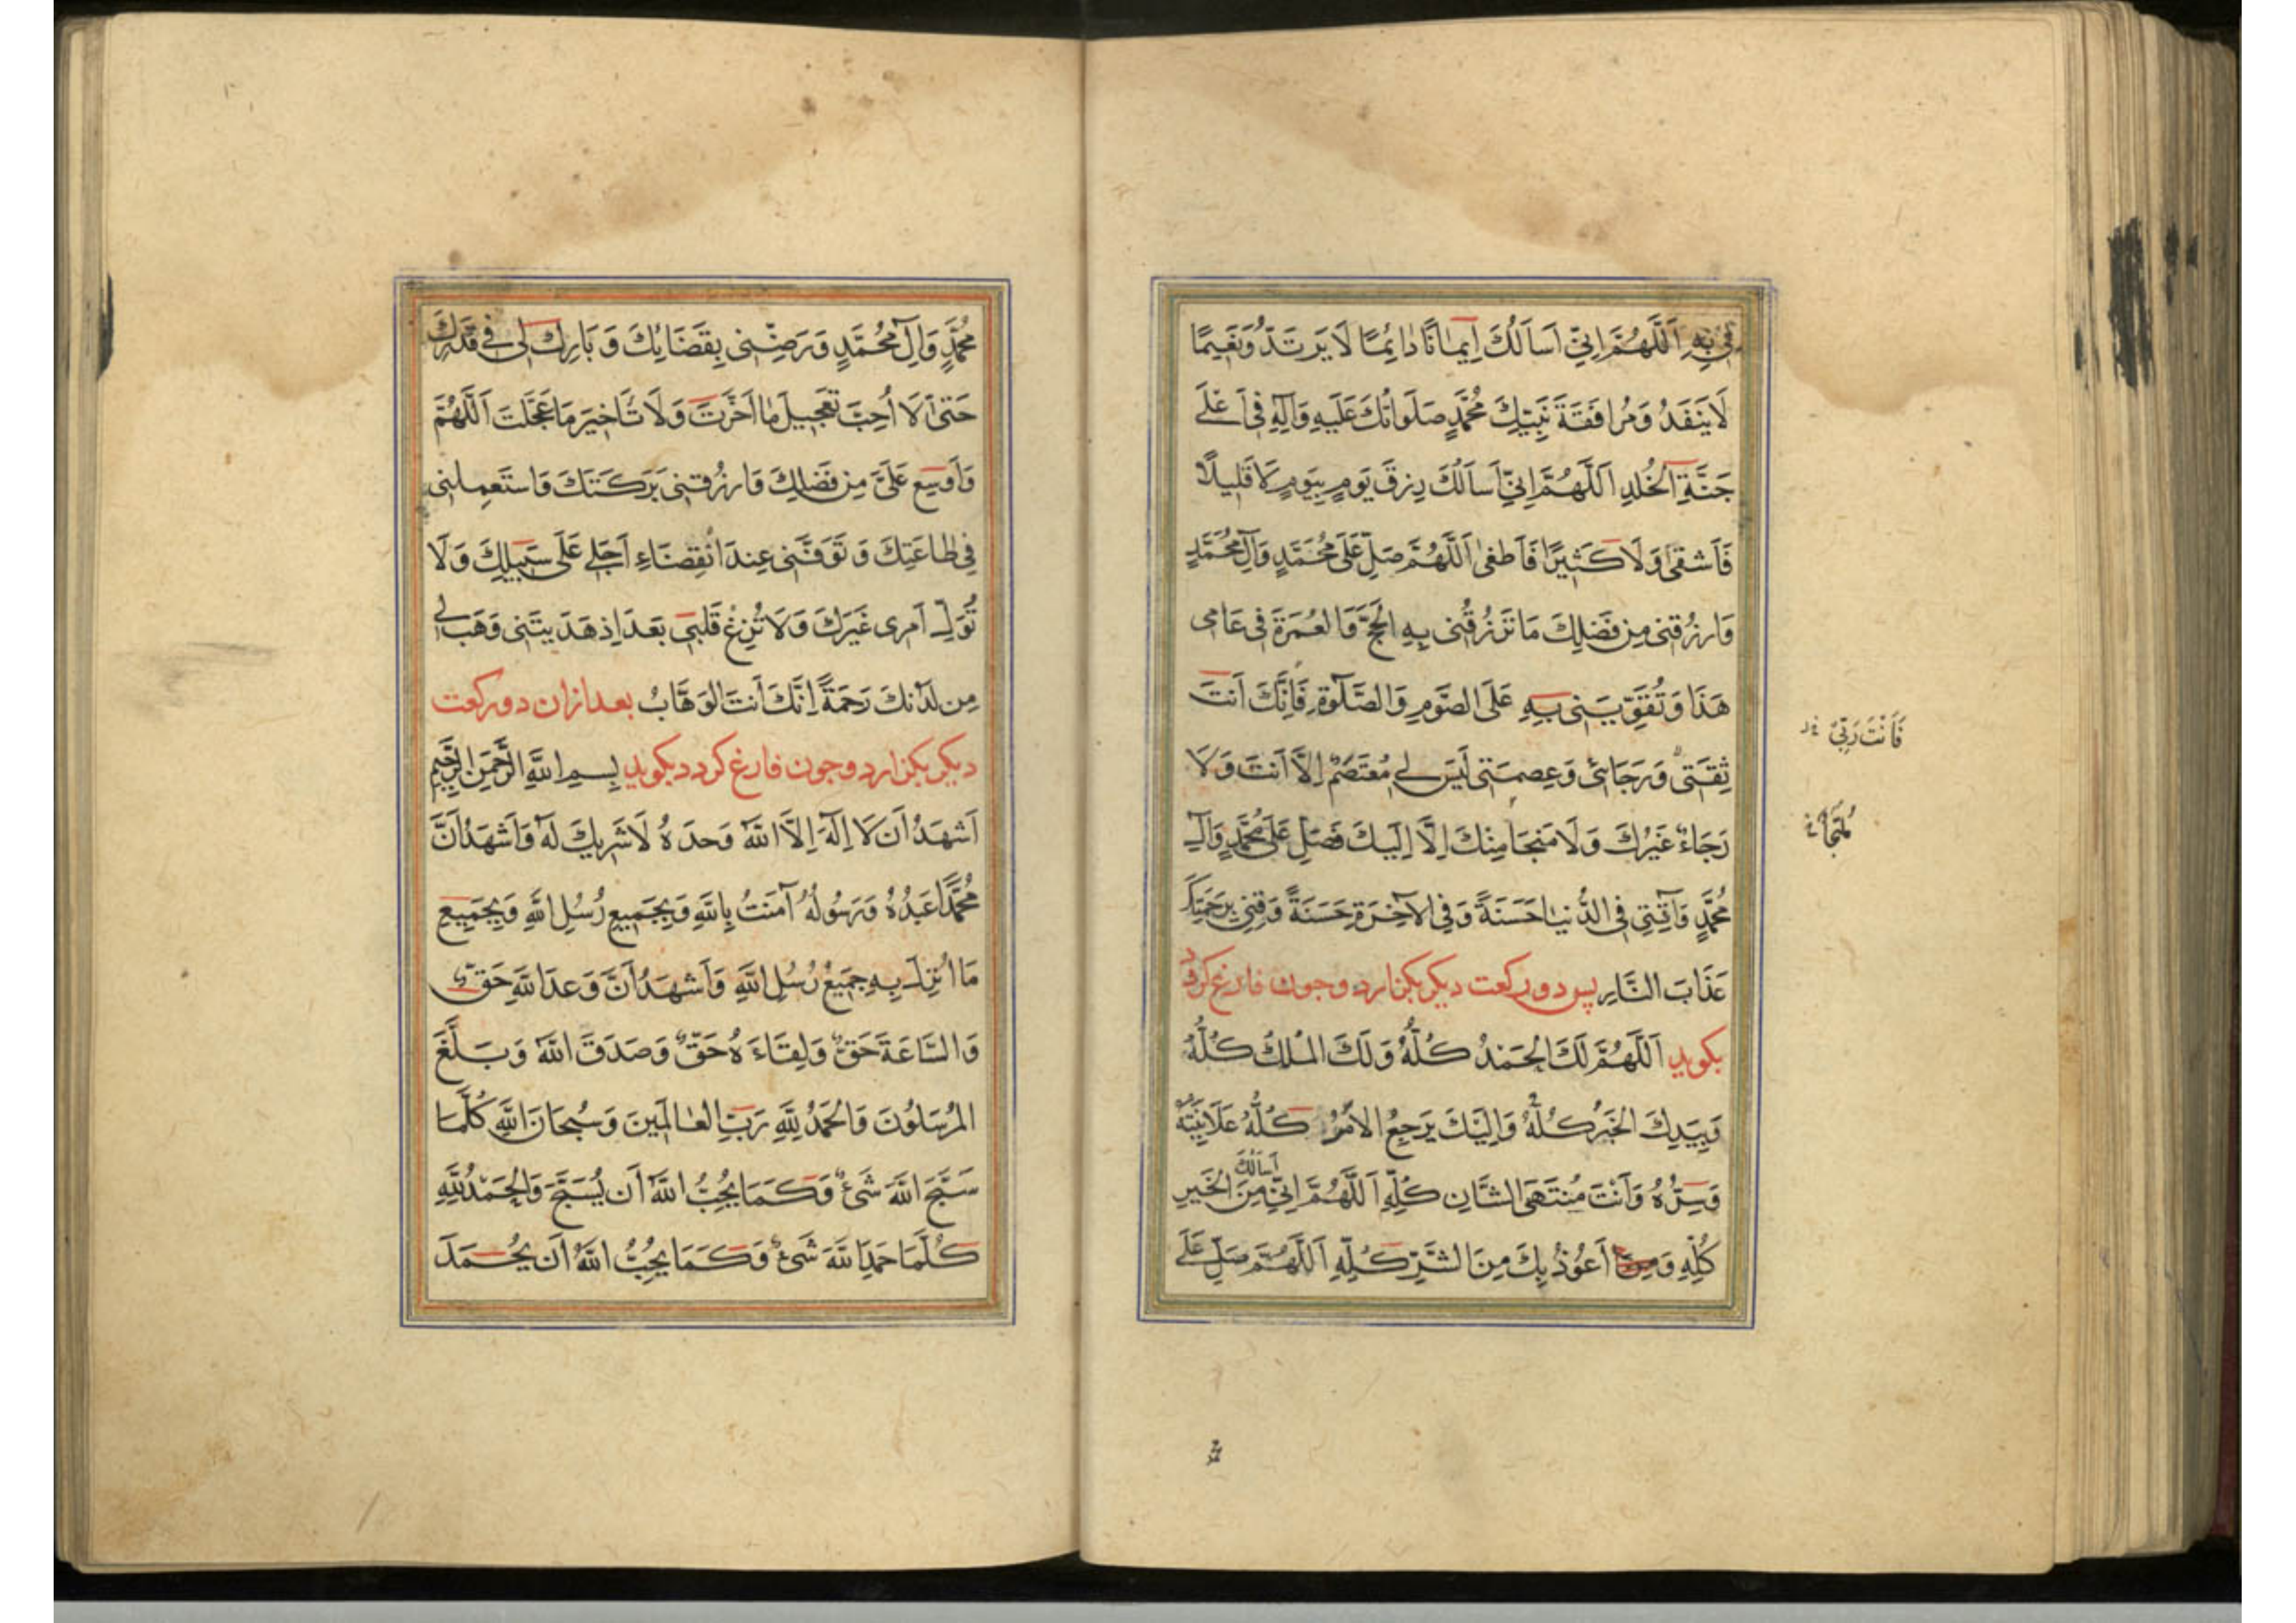 بِهِ اَللّٰهُمَّ اِنّي اَسأَلُكَ اِيمانًا دائِمًا لا يَرتَدُّ وَنَعيمًا
لا يَنفَدُ وَمُرافَقَةَ نَبِيِّكَ مُحَمَّدٍ صَلَواتُكَ عَلَيهِ وَآلِهِ في اَعلى
جَنَّةِ الخُلدِ اَللّٰهُمَّ اِنّي اَسأَلُكَ رِزقَ يَومٍ بِيَومٍ لا قَليلًا
فَاَشقى وَلا كَثيرًا فَاَطغى اَللّٰهُمَّ صَلِّ عَلى مُحَمَّدٍ وَآلِ مُحَمَّدٍ
وَارزُقني مِن فَضلِكَ ما تَرزُقُني بِهِ الحَجَّ وَالعُمرَةَ في عامي
هَذا وَتُقَوّيَني بِهِ عَلَى الصَّومِ وَالصَّلوةِ فَاِنَّكَ اَنتَ
فَاَنْتَ رَبّي
ثِقَتي وَرَجائي وَعِصمَتي لَيسَ لي مُعتَصَمٌ اِلّا اَنتَ وَلا
رَجاءٌ غَيرُكَ وَلا مَنجَا مِنكَ اِلّا اِلَيكَ فَصَلِّ عَلى مُحَمَّدٍ وَآلِ
مُحَمَّدٍ وَآتِني فِي الدُّنيا حَسَنَةً وَفِي الآخِرَةِ حَسَنَةً وَقِني بِرَحمَتِكَ
عَذابَ النّارِ پس دو ركعت ديكر بكزارد و جون فارغ كردد
بكويد اَللّٰهُمَّ لَكَ الحَمدُ كُلُّهُ وَلَكَ المُلكُ كُلُّهُ
وَبِيَدِكَ الخَيرُ كُلُّهُ وَاِلَيكَ يَرجِعُ الاَمرُ كُلُّهُ عَلانِيَتُهُ
وَسِرُّهُ وَاَنتَ مُنتَهَى الشّانِ كُلِّهِ اَللّٰهُمَّ اِنّي اَسأَلُكَ مِنَ الخَيرِ
كُلِّهِ وَ اَعُوذُ بِكَ مِنَ الشَّرِّ كُلِّهِ اَللّٰهُمَّ صَلِّ عَلى
مُحَمَّدٍ وَآلِ مُحَمَّدٍ وَرَضِّني بِقَضائِكَ وَبارِك لي في قَدَرِكَ
حَتّى لا اُحِبَّ تَعجيلَ ما اَخَّرتَ وَلا تَاخيرَ ما عَجَّلتَ اَللّٰهُمَّ
وَاَوسِع عَلَيَّ مِن فَضلِكَ وَارزُقني بَرَكَتَكَ وَاستَعمِلني
في طاعَتِكَ وَتَوَفَّني عِندَ انقِضاءِ اَجَلي عَلى سَبيلِكَ وَلا
تُوَلِّ اَمري غَيرَكَ وَلا تُزِغ قَلبي بَعدَ اِذ هَدَيتَني وَهَب لي
مِن لَدُنكَ رَحمَةً اِنَّكَ اَنتَ الوَهّابُ بعد ازان دو ركعت
ديكر بكزارد و جون فارغ كردد بكويد بِسمِ اللّٰهِ الرَّحمٰنِ الرَّحيمِ
اَشهَدُ اَن لا اِلٰهَ اِلَّا اللّٰهُ وَحدَهُ لا شَريكَ لَهُ وَاَشهَدُ اَنَّ
مُحَمَّدًا عَبدُهُ وَرَسُولُهُ آمَنتُ بِاللّٰهِ وَبِجَميعِ رُسُلِ اللّٰهِ وَبِجَميعِ
ما اُنزِلَ بِهِ جَميعُ رُسُلِ اللّٰهِ وَاَشهَدُ اَنَّ وَعدَ اللّٰهِ حَقٌّ
وَالسّاعَةَ حَقٌّ وَلِقاءَهُ حَقٌّ وَصَدَقَ اللّٰهُ وَبَلَّغَ
المُرسَلُونَ وَالحَمدُ لِلّٰهِ رَبِّ العالَمينَ وَسُبحانَ اللّٰهِ كُلَّما
سَبَّحَ اللّٰهَ شَيءٌ وَكَما يُحِبُّ اللّٰهُ اَن يُسَبَّحَ وَالحَمدُ لِلّٰهِ
كُلَّما حَمِدَ اللّٰهَ شَيءٌ وَكَما يُحِبُّ اللّٰهُ اَن يُحمَدَ